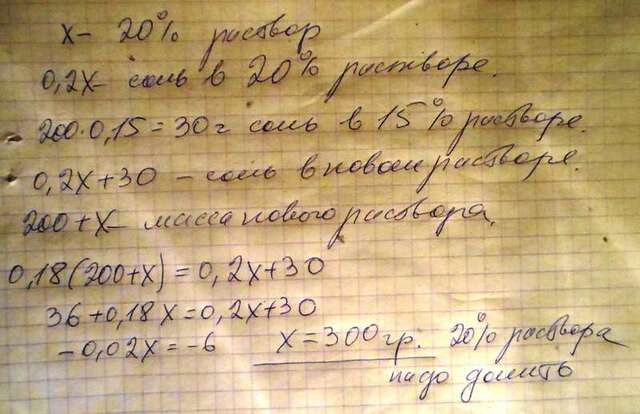 x - 20% раствор
0,2x - соль в 20% растворе.
200·0,15=30г соль в 15% растворе.
0,2x+30 - соль в новом растворе.
200+x - масса нового раствора.
0,18(200+x)=0,2x+30
36+0,18x=0,2x+30
-0,02x=-6 x=300гр. 20% раствора
надо долить